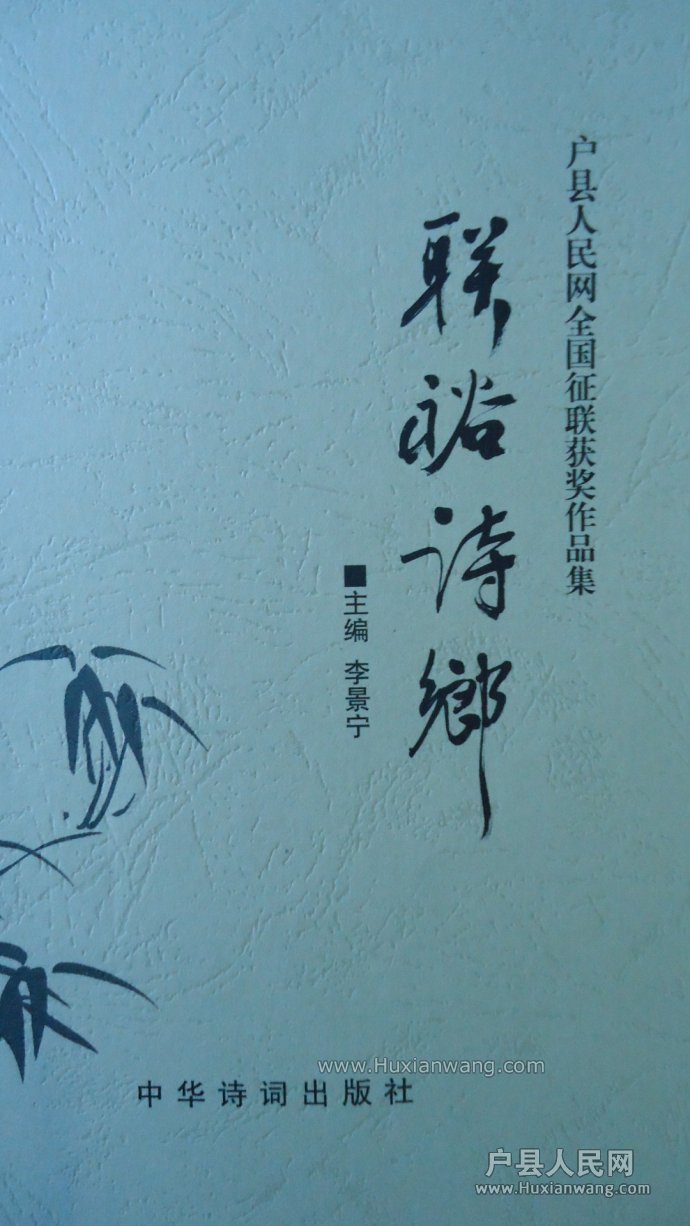 户县人民网全国征联获奖作品集
联裕诗鄉
■主编 李景宁
www.Huxianwang.com
中华诗词出版社
户县人民网
www.Huxianwang.com